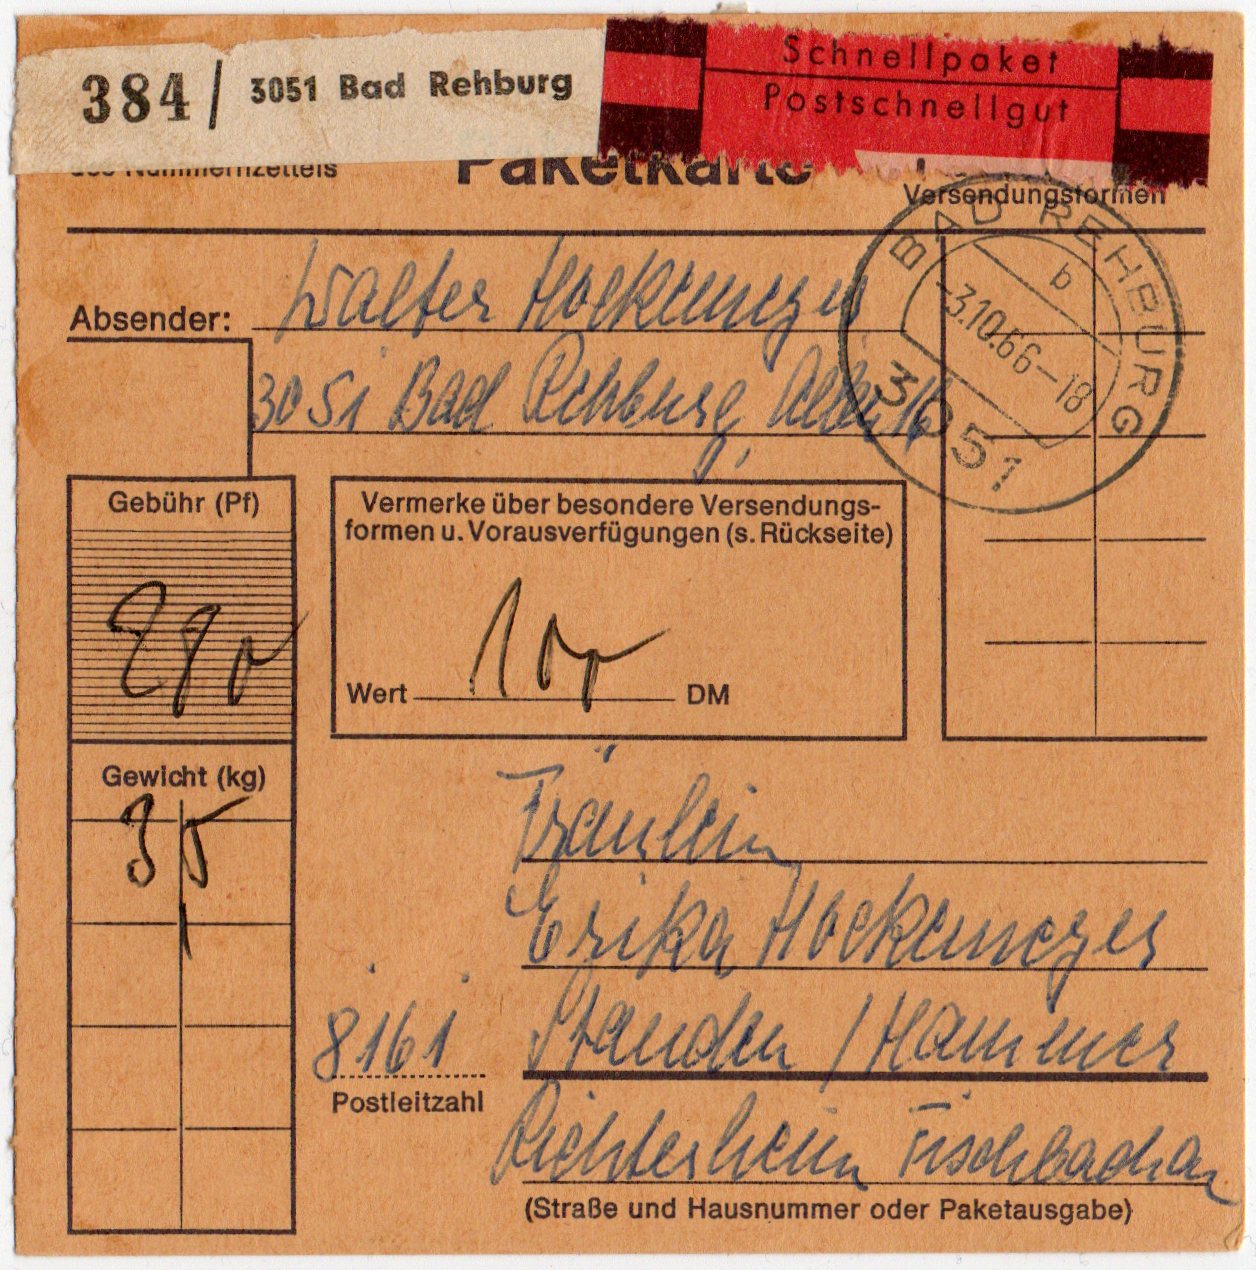 384/ 3051 Bad Rehburg
Schnellpaket
Postschnellgut
des Nummernzettels
Paketkarte
Versendungsformen
BAD REHBURG
b
-3.10.66-18
3051
Absender:
Walter
3051 Bad Rehburg,
Gebühr (Pf)
Vermerke über besondere Versendungs-
formen u. Vorausverfügungen (s. Rückseite)
Wert
DM
Gewicht (kg)
3
Fräulein
Erika
8161
Stauden / Hammer
Postleitzahl
Richterheim Fischbachau
(Straße und Hausnummer oder Paketausgabe)